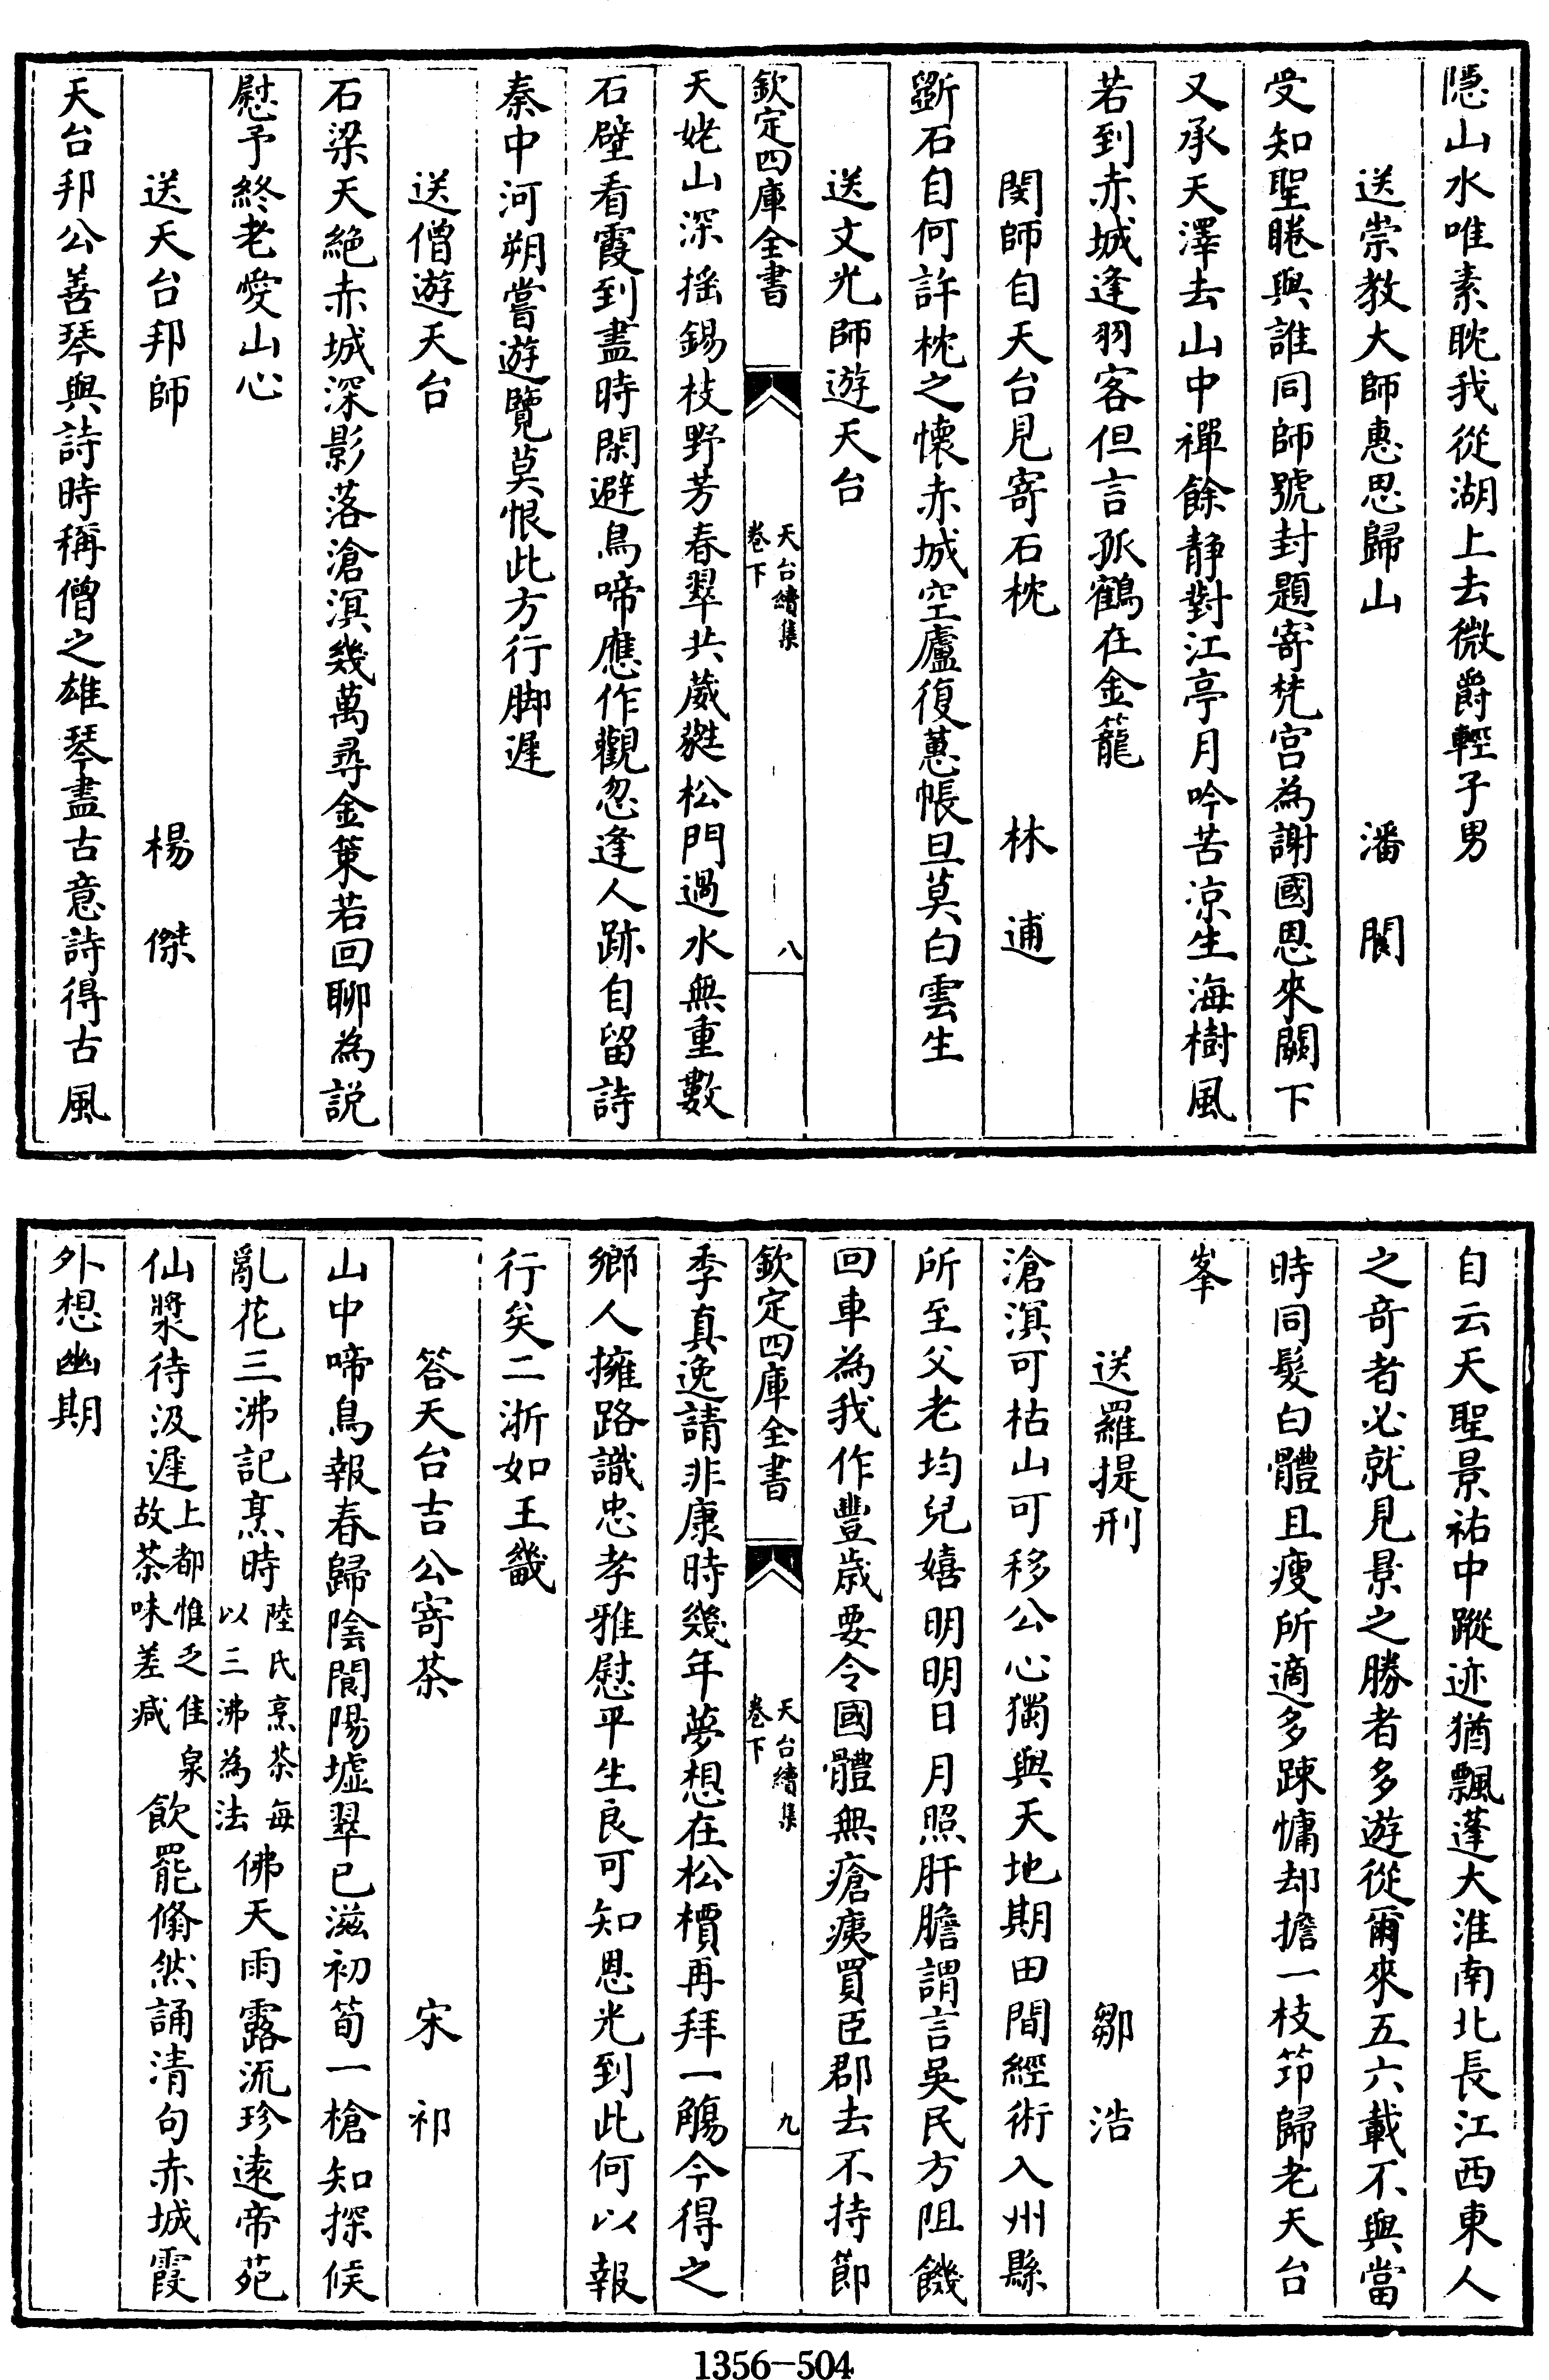 隱山水唯素耽我從湖上去微爵輕子男
送崇教大師惠思歸山　潘閬
受知聖睠與誰同師號封題寄梵宫為謝國恩來闕下
又承天澤去山中禪餘静對江亭月吟苦凉生海樹風
若到赤城逢羽客但言孤鶴在金籠
閔師自天台見寄石枕　林逋
斵石自何許枕之懷赤城空廬復蕙帳旦莫白雲生
送文光師遊天台
欽定四庫全書　天台續集卷下　八
天姥山深揺錫枝野芳春翠共葳蕤松門過水無重數
石壁看霞到盡時閑避鳥啼應作觀忽逢人跡自留詩
秦中河朔嘗遊覽莫恨此方行脚遲
送僧遊天台
石梁天絶赤城深影落滄溟幾萬尋金策若回聊為説
慰予終老愛山心
送天台邦師　楊傑
天台邦公善琴與詩時稱僧之雄琴盡古意詩得古風
自云天聖景祐中蹤迹猶飄蓬大淮南北長江西東人
之竒者必就見景之勝者多遊從爾來五六載不與當
時同髮白體且瘦所適多踈慵却擔一枝笻歸老天台
峯
送羅提刑　鄒浩
滄溟可枯山可移公心獨與天地期田間經術入州縣
所至父老均兒嬉明明日月照肝膽謂言吳民方阻饑
回車為我作豐歳要令國體無瘡痍買臣郡去不持節
欽定四庫全書　天台續集卷下　九
季真逸請非康時幾年夢想在松檟再拜一觴今得之
鄉人擁路識忠孝雅慰平生良可知恩光到此何以報
行矣二浙如王畿
答天台吉公寄茶　宋祁
山中啼鳥報春歸陰閬陽墟翠已滋初筍一槍知探候
亂花三沸記烹時陸氏烹茶每以三沸為法佛天雨露流珍逺帝苑
仙漿待汲遲上都惟乏佳泉故茶味差减飲罷翛然誦清句赤城霞
外想幽期
1356-504